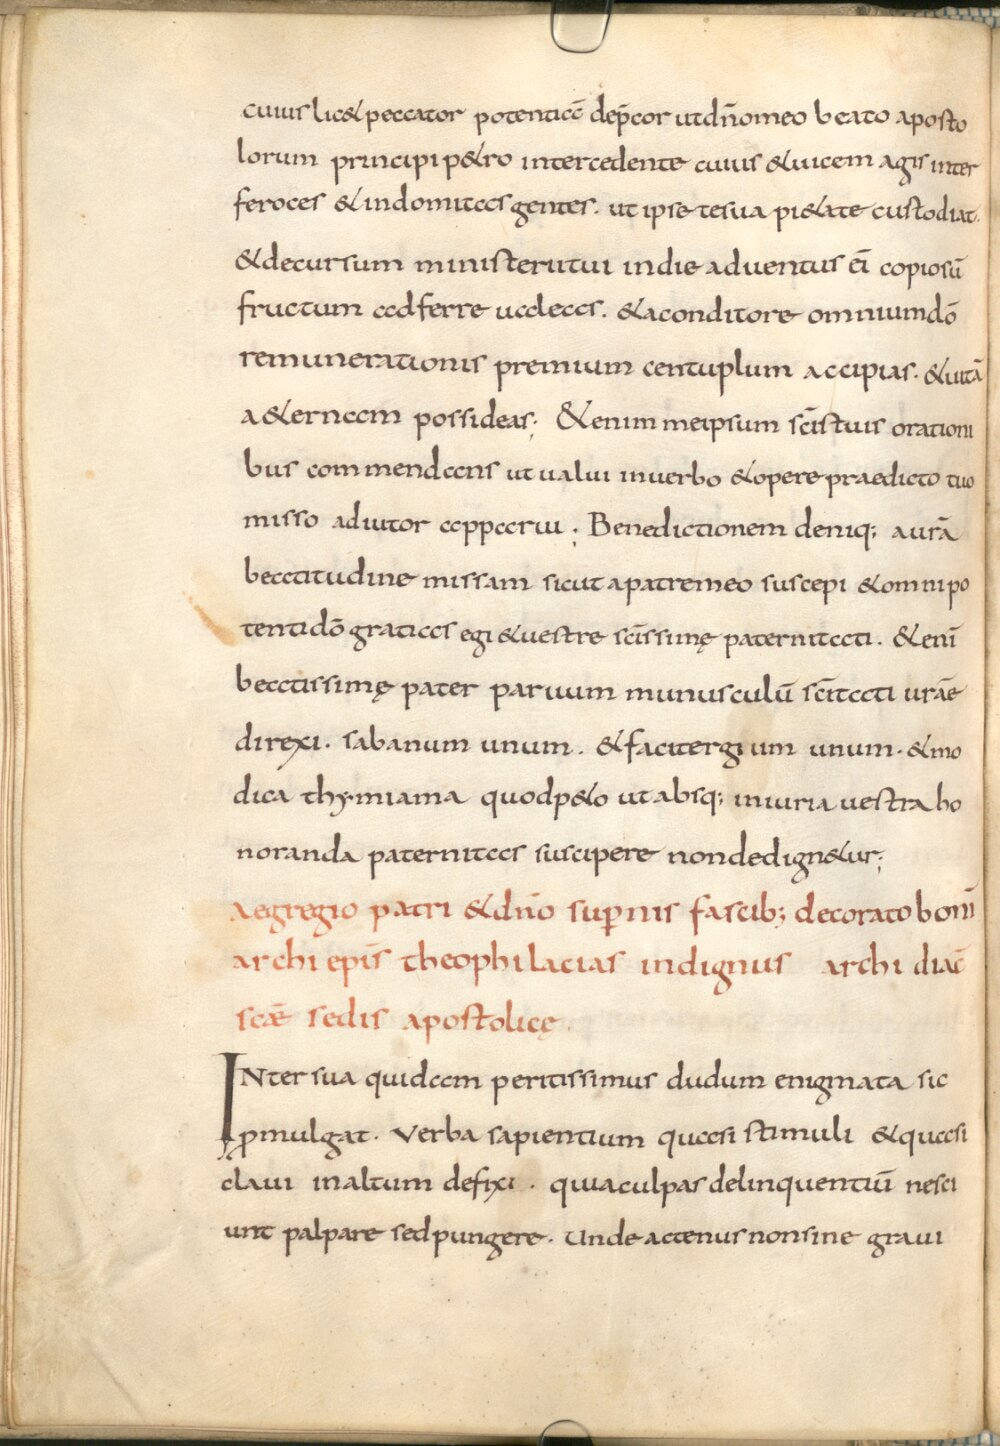 cuius lic& peccator potentia dep̄cor ut dn̄o meo beato aposto
lorum principi p&ro intercedente cuius & uicem agis inter
feroces & indomitas gentes. ut ipse te sua pi&ate custodiat.
& decursum ministerii tui in die aduentus ei copiosū
fructum adferre ualeas. & a conditore omnium dō
remunerationis premium centuplum accipias. & uitā
a&ernam possideas; &enim me ipsum sc̄is tuis orationi
bus commendans ut ualui in uerbo & opere praedicto tuo
misso adiutor apparui; Benedictionem deniq; a urā
beatitudine missam sicut a patre meo suscepi & omnipo
tenti dō gratias egi & uestre sc̄issimę paternitati. &eni
beatissimę pater paruum munusculū sc̄itati urāe
direxi. sabanum unum. & facitergium unum. & mo
dica thymiama quod p&o ut absq; iniuria uestra ho
noranda paternitas suscipere non dedign&ur;
aegregio patri & dn̄o sup̄nis fascib; decorato boni
archi epis̄ theophilacias indignus archi diac̄
sc̄ae sedis apostolicę.
INter sua quidam peritissimus dudum enigmata sic
ꝓmulgat. Verba sapientium quasi stimuli & quasi
claui in altum defixi. quia culpas delinquentiū nesci
unt palpare sed pungere. Unde actenus non sine graui